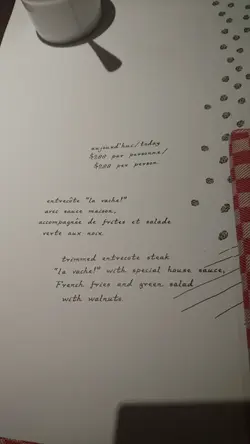 aujourd'hui/today
per personne/
per person
entrecôte "la vache!"
avec sauce maison,
accompagnée de frites et salade
verte aux noix
trimmed entrecote steak
"la vache!" with special house sauce,
French fries and green salad
with walnuts